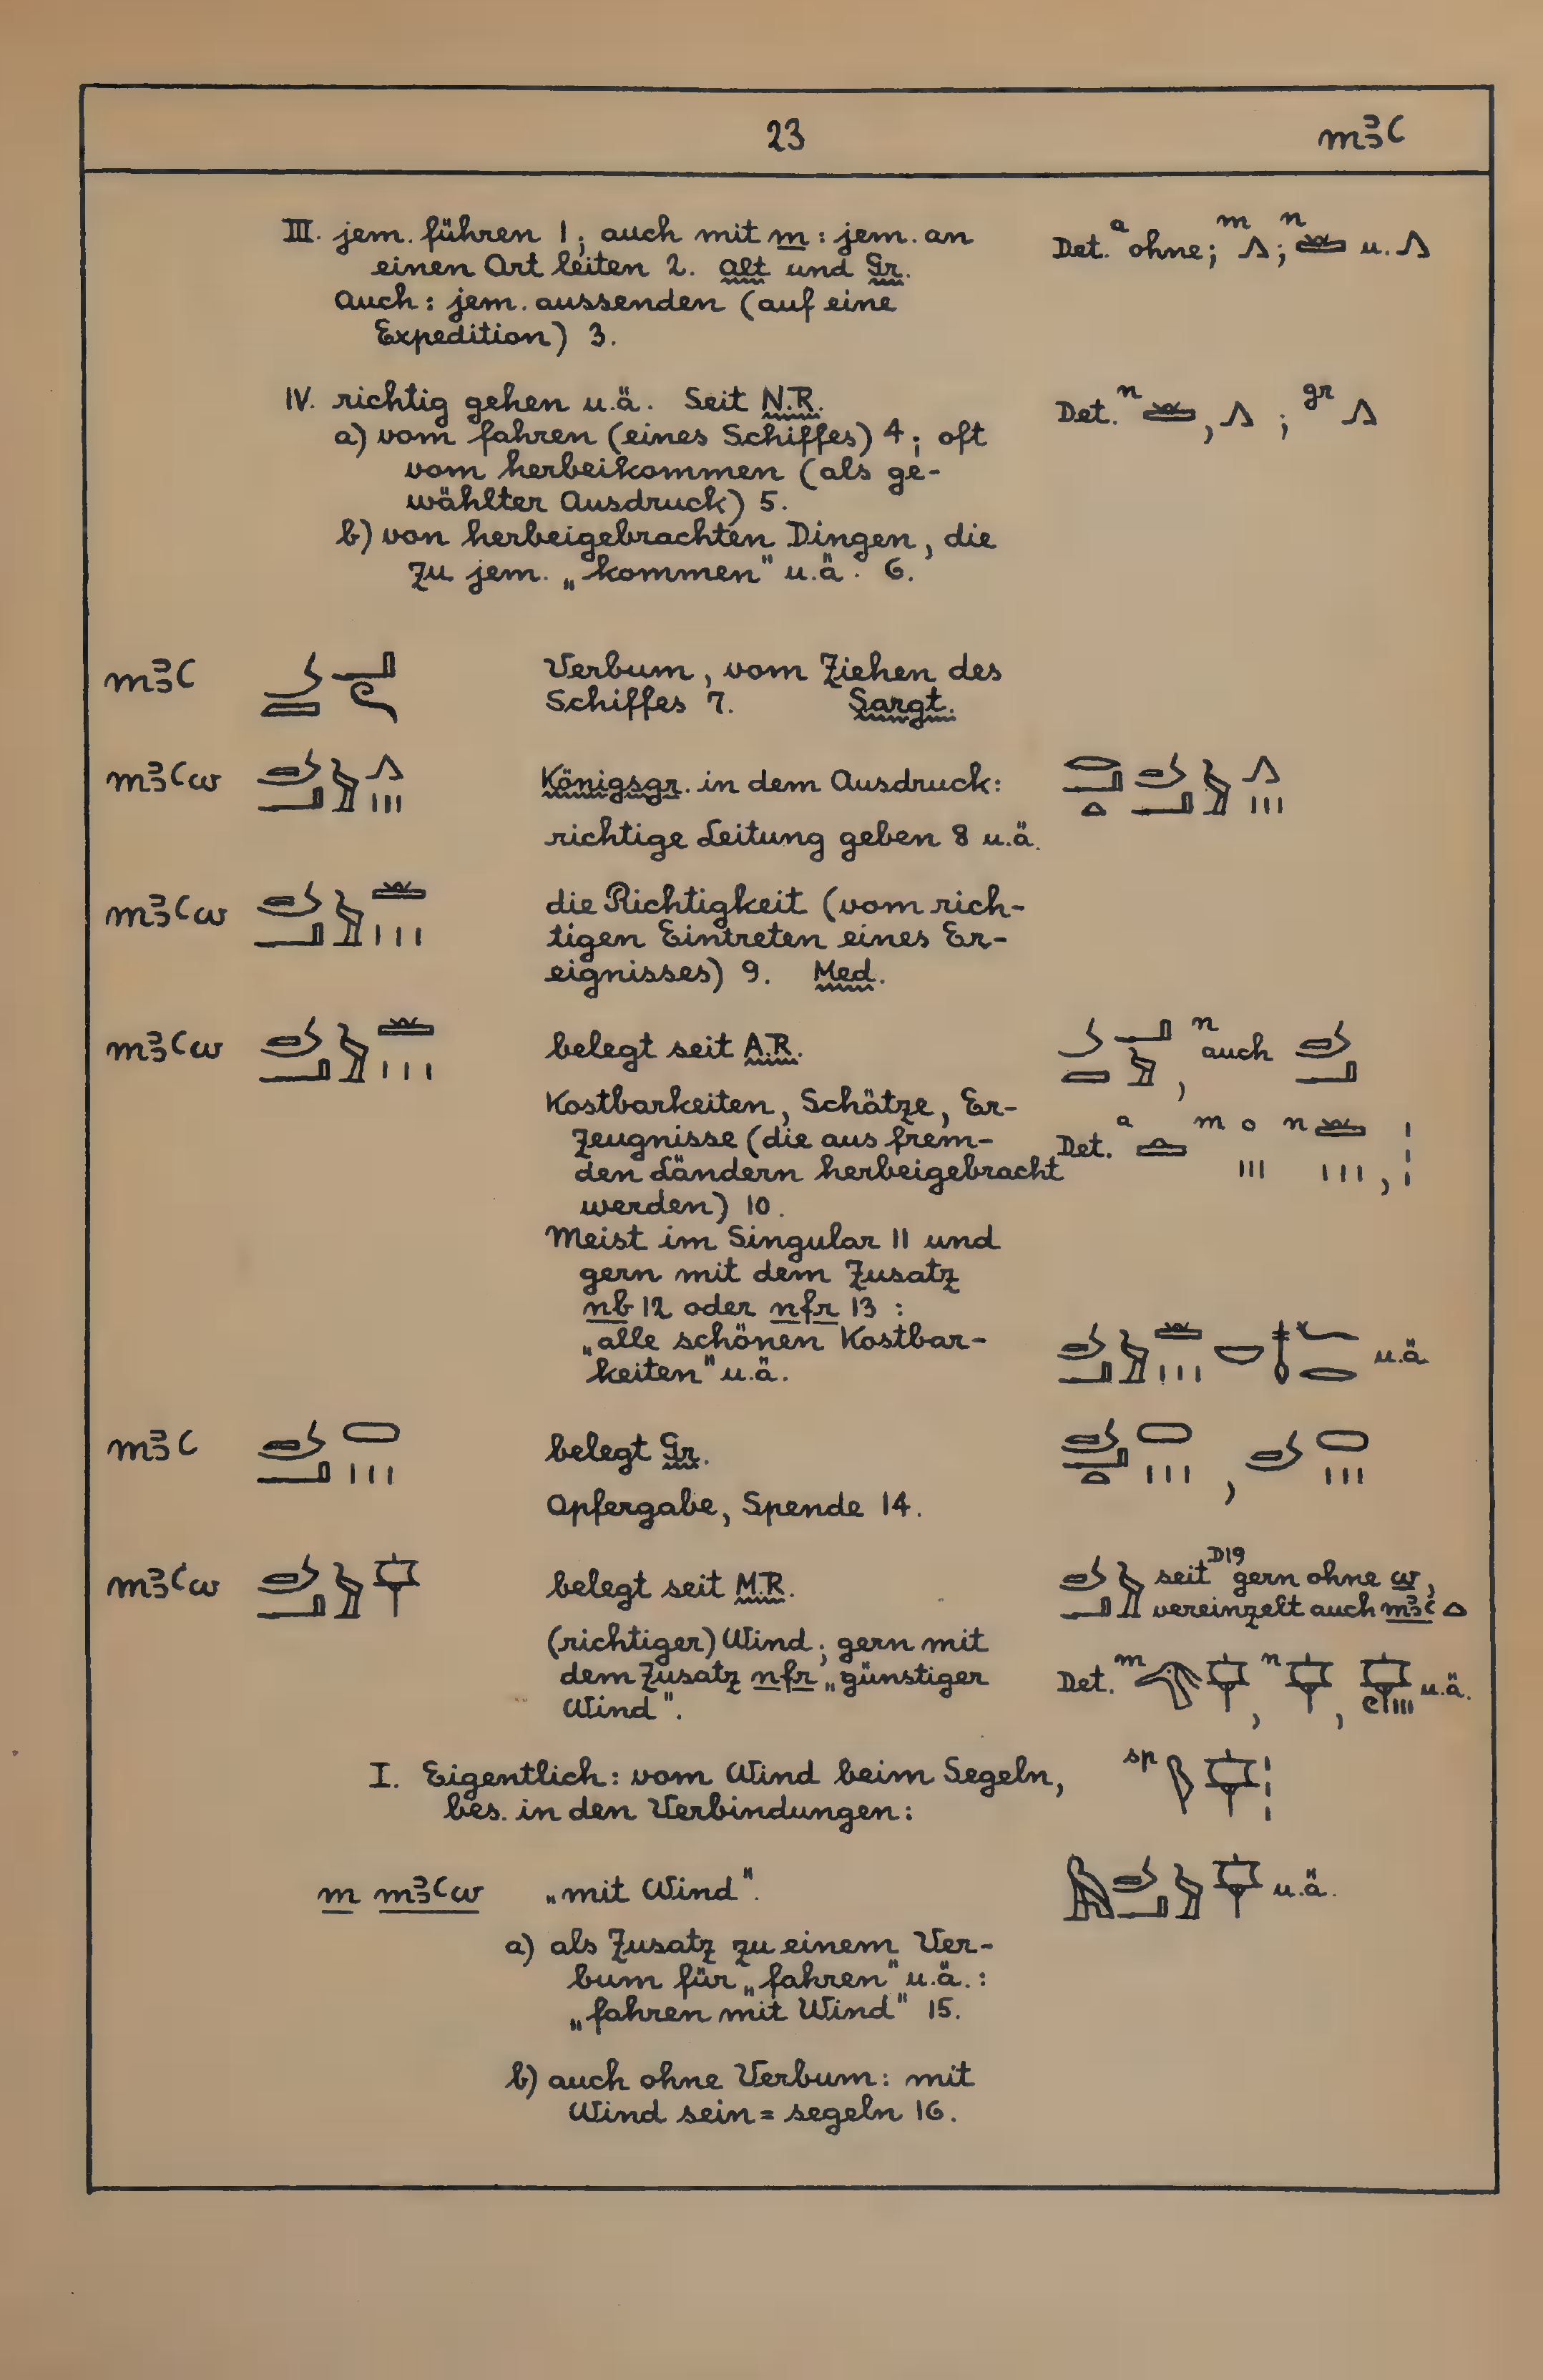 23 mꜣꜥ
III. jem. führen 1; auch mit m: jem. an
einen Ort leiten 2. Alt und Gr.
Auch: jem. aussenden (auf eine
Expedition) 3.
Det. a ohne; m 𓂻; n 𓏛 u. 𓂻
IV. richtig gehen u.ä. Seit N.R.
a) vom fahren (eines Schiffes) 4; oft
vom herbeikommen (als ge-
wählter Ausdruck) 5.
b) von herbeigebrachten Dingen, die
zu jem. „kommen" u.ä. 6.
Det. n 𓏛, 𓂻; gr 𓂻
mꜣꜥ Verbum, vom Ziehen des
Schiffes 7. Sargt.
mꜣꜥw Königsgr. in dem Ausdruck:
richtige Leitung geben 8 u.ä.
mꜣꜥw die Richtigkeit (vom rich-
tigen Eintreten eines Er-
eignisses) 9. Med.
mꜣꜥw belegt seit A.R.
n auch
Kostbarkeiten, Schätze, Er-
zeugnisse (die aus frem-
den Ländern herbeigebracht
werden) 10.
Det. a m n
Meist im Singular 11 und
gern mit dem Zusatz
nb 12 oder nfr 13:
„alle schönen Kostbar-
keiten" u.ä.
u.ä.
mꜣꜥ belegt Gr.
Opfergabe, Spende 14.
mꜣꜥw belegt seit M.R.
seit D19 gern ohne w,
vereinzelt auch mꜣꜥ 𓏏
(richtiger) Wind; gern mit
dem Zusatz nfr „günstiger
Wind".
Det. m n u.ä.
sp
I. Eigentlich: vom Wind beim Segeln,
bes. in den Verbindungen:
m mꜣꜥw „mit Wind". u.ä.
a) als Zusatz zu einem Ver-
bum für „fahren" u.ä.:
„fahren mit Wind" 15.
b) auch ohne Verbum: mit
Wind sein = segeln 16.